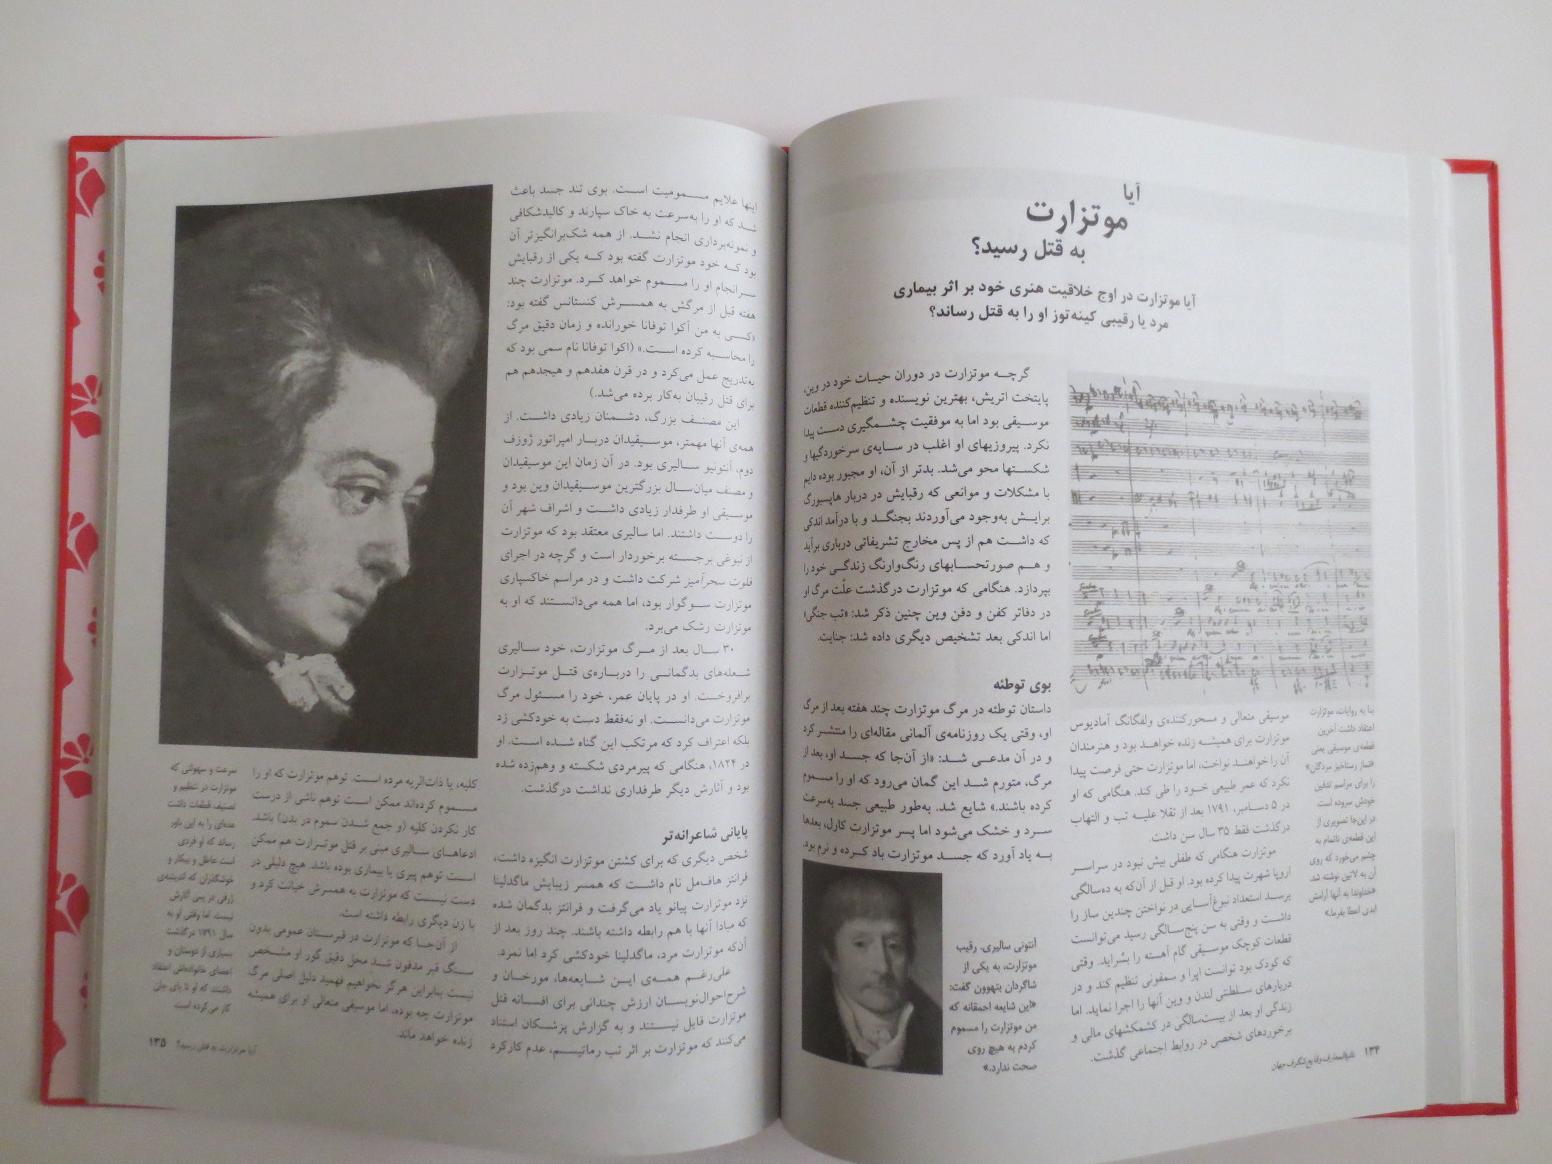 آیا
موتزارت
به قتل رسید؟
آیا موتزارت در اوج خلاقیت هنری خود بر اثر بیماری
مرد یا رقیبی کینه‌توز او را به قتل رساند؟
موسیقی متعالی و مسحورکننده‌ی ولفگانگ آمادیوس
موتزارت برای همیشه زنده خواهد بود و هنرمندان
آن را خواهند نواخت، اما موتزارت حتی فرصت پیدا
نکرد که عمر طبیعی خود را طی کند. هنگامی که او
در ۵ دسامبر، ۱۷۹۱ بعد از تقلا علیه تب و التهاب
درگذشت فقط ۳۵ سال سن داشت.
موتزارت هنگامی که طفلی بیش نبود در سراسر
اروپا شهرت پیدا کرده بود. او قبل از آن‌که به ده‌سالگی
برسد استعداد نبوغ‌آسایی در نواختن چندین ساز را
داشت و وقتی به سن پنج‌سالگی رسید می‌توانست
قطعات کوچک موسیقی گام آهسته را بسُراید. وقتی
که کودک بود توانست اپرا و سمفونی تنظیم کند و در
دربارهای سلطنتی لندن و وین آنها را اجرا نماید. اما
زندگی او بعد از بیست‌سالگی در کشمکشهای مالی و
برخوردهای شخصی در روابط اجتماعی گذشت.
بنا به روایات، موتزارت
اعتقاد داشت آخرین
قطعه‌ی موسیقی یعنی
«نماز رستاخیز مردگان»
را برای مراسم تدفین
خودش سروده است
در این‌جا تصویری از
این قطعه‌ی ناتمام به
چشم می‌خورد که روی
آن به لاتین نوشته شد.
«خداوندا به آنها آرامش
ابدی اعطا بفرما.»
گرچه موتزارت در دوران حیات خود در وین،
پایتخت اتریش، بهترین نویسنده و تنظیم‌کننده قطعات
موسیقی بود اما به موفقیت چشمگیری دست پیدا
نکرد. پیروزیهای او اغلب در سایه‌ی سرخوردگیها و
شکستها محو می‌شد. بدتر از آن، او مجبور بوده دایم
با مشکلات و موانعی که رقبایش در دربار هاپسبورگ
برایش به‌وجود می‌آوردند بجنگد و با درآمد اندکی
که داشت هم از پس مخارج تشریفاتی درباری برآید
و هم صورتحسابهای رنگ‌وارنگ زندگی خود را
بپردازد. هنگامی که موتزارت درگذشت علّت مرگ او
در دفاتر کفن و دفن وین چنین ذکر شد: «تب جنگی»
اما اندکی بعد تشخیص دیگری داده شد: جنایت.
بوی توطئه
داستان توطئه در مرگ موتزارت چند هفته بعد از مرگ
او، وقتی یک روزنامه‌ی آلمانی مقاله‌ای را منتشر کرد
و در آن مدعی شد: «از آن‌جا که جسد او، بعد از
مرگ، متورم شد این گمان می‌رود که او را مسموم
کرده باشند.» شایع شد. به‌طور طبیعی جسد به‌سرعت
سرد و خشک می‌شود اما پسر موتزارت کارل، بعدها
به یاد آورد که جسد موتزارت باد کرده و نرم بود.
آنتونی سالیری، رقیب
موتزارت، به یکی از
شاگردان بتهوون گفت:
«این شایعه احمقانه که
من موتزارت را مسموم
کردم به هیچ روی
صحت ندارد.»
۱۳۴ دایرةالمعارف وقایع شگرف جهان
اینها علایم مسمومیت است. بوی تند جسد باعث
شد که او را به‌سرعت به خاک سپارند و کالبدشکافی
و نمونه‌برداری انجام نشد. از همه شک‌برانگیزتر آن
بود که خود موتزارت گفته بود که یکی از رقبایش
سرانجام او را مسموم خواهد کرد. موتزارت چند
هفته قبل از مرگش به همسرش کنستانس گفته بود:
«کسی به من آکوا توفانا خورانده و زمان دقیق مرگ
را محاسبه کرده است.» (اکوا توفانا نام سمی بود که
به‌تدریج عمل می‌کرد و در قرن هفدهم و هیجدهم هم
برای قتل رقیبان به‌کار برده می‌شد.)
این مصنف بزرگ، دشمنان زیادی داشت. از
همه‌ی آنها مهمتر، موسیقیدان دربار امپراتور ژوزف
دوم، آنتونیو سالیری بود. در آن زمان این موسیقیدان
و مصنف میان‌سال بزرگترین موسیقیدان وین بود و
موسیقی او طرفدار زیادی داشت و اشراف شهر آن
را دوست داشتند. اما سالیری معتقد بود که موتزارت
از نبوغی برجسته برخوردار است و گرچه در اجرای
فلوت سحرآمیز شرکت داشت و در مراسم خاکسپاری
موتزارت سوگوار بود، اما همه می‌دانستند که او به
موتزارت رشک می‌برد.
۳۰ سال بعد از مرگ موتزارت، خود سالیری
شعله‌های بدگمانی را درباره‌ی قتل موتزارت
برافروخت. او در پایان عمر، خود را مسئول مرگ
موتزارت می‌دانست. او نه‌فقط دست به خودکشی زد
بلکه اعتراف کرد که مرتکب این گناه شده است. او
در ۱۸۲۴، هنگامی که پیرمردی شکسته و وهم‌زده شده
بود و آثارش دیگر طرفداری نداشت درگذشت.
پایانی شاعرانه‌تر
شخص دیگری که برای کشتن موتزارت انگیزه داشت،
فرانتز هاف‌مل نام داشت که همسر زیبایش ماگدلینا
نزد موتزارت پیانو یاد می‌گرفت و فرانتز بدگمان شده
که مبادا آنها با هم رابطه داشته باشند. چند روز بعد از
آن‌که موتزارت مرد، ماگدلینا خودکشی کرد اما نمرد.
علی‌رغم همه‌ی این شایعه‌ها، مورخان و
شرح‌احوال‌نویسان ارزش چندانی برای افسانه قتل
موتزارت قایل نیستند و به گزارش پزشکان استناد
می‌کنند که موتزارت بر اثر تب رماتیسم، عدم کارکرد
کلیه، یا ذات‌الریه مرده است. توهم موتزارت که او را
مسموم کرده‌اند ممکن است توهم ناشی از درست
کار نکردن کلیه (و جمع شدن سموم در بدن) باشد.
ادعاهای سالیری مبنی بر قتل موتزارت هم ممکن
است توهم پیری یا بیماری بوده باشد. هیچ دلیلی در
دست نیست که موتزارت به همسرش خیانت کرد و
با زن دیگری رابطه داشته است.
از آن‌جا که موتزارت در قبرستان عمومی بدون
سنگ قبر مدفون شد محل دقیق گور او مشخص
نیست بنابراین هرگز نخواهیم فهمید دلیل اصلی مرگ
موتزارت چه بوده، اما موسیقی متعالی او برای همیشه
زنده خواهد ماند.
سرعت و سهولتی که
موتزارت در تنظیم و
تصنیف قطعات داشت
عده‌ای را به این باور
رساند که او فردی
است عاطل و بیکار و
خوشگذران که اندیشه‌ی
ژرفی در پس آثارش
نیست. اما وقتی او به
سال ۱۷۹۱ درگذشت
بسیاری از دوستان و
اعضای خانواده‌اش اعتقاد
داشتند که او تا پای جان
کار می‌کرده است.
آیا موتزارت به قتل رسید؟ ۱۳۵